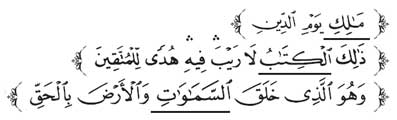 ﴿ مَـٰلِكِ يَوْمِ الدِّينِ ﴾
﴿ ذَٰلِكَ الْكِتَـٰبُ لَا رَيْبَ ۛ فِيهِ ۛ هُدًى لِّلْمُتَّقِينَ ﴾
﴿ وَهُوَ الَّذِى خَلَقَ السَّمَـٰوَٰتِ وَالْأَرْضَ بِالْحَقِّ ﴾